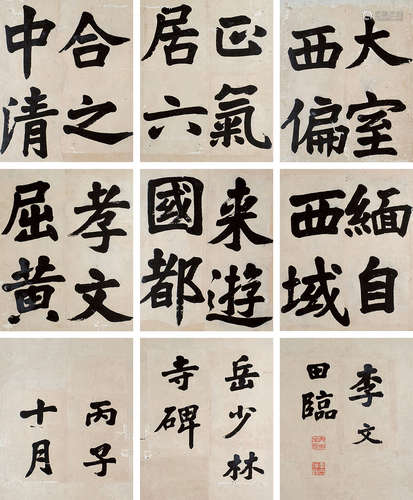 大室
西偏
正氣
居六
合之
中清
緬自
西域
来遊
國都
孝文
屈黄
李文
田臨
岳少林
寺碑
丙子
十月